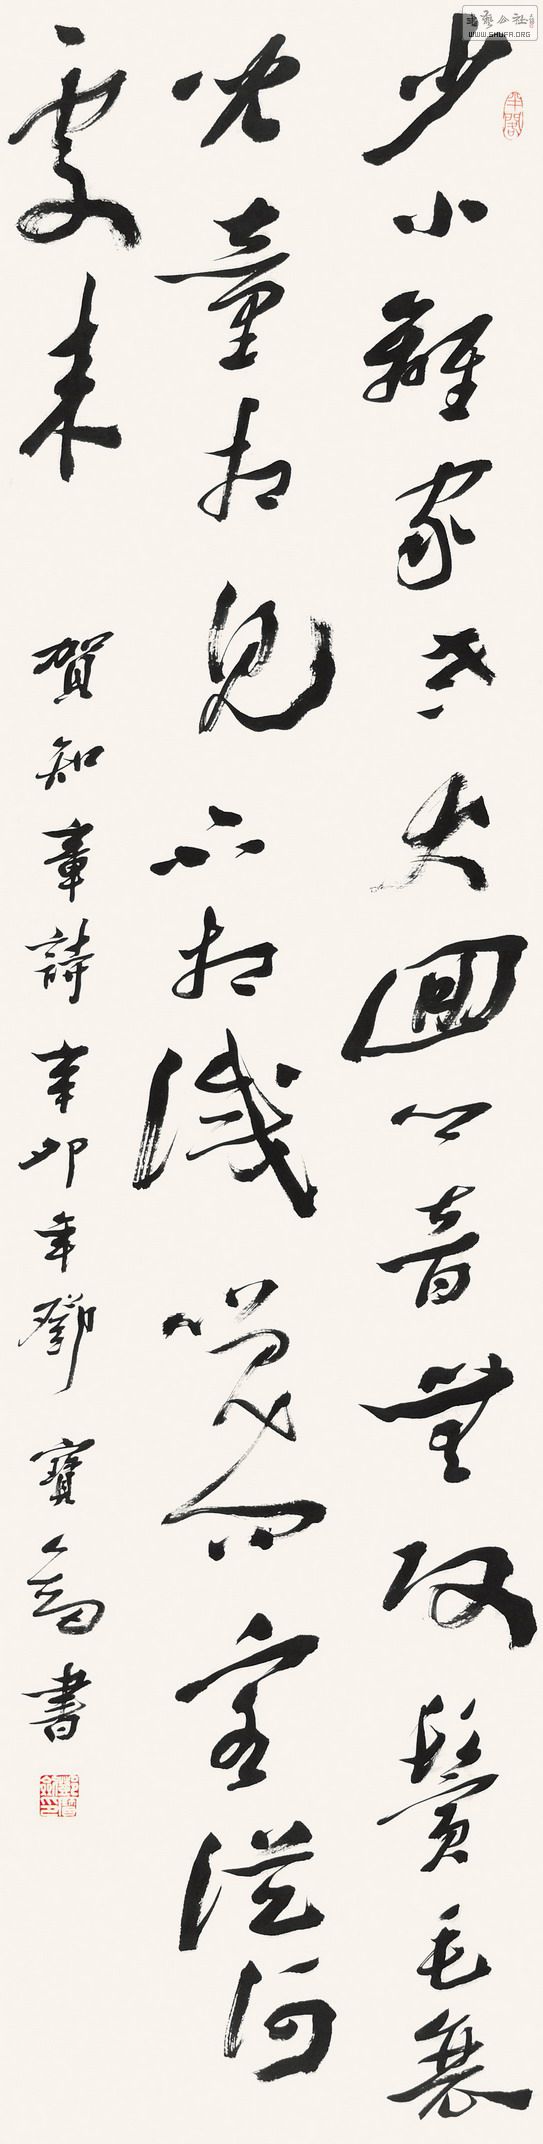 少小離家老大迴鄉音無改鬢毛衰
兒童相見不相識笑問客從何
處来
賀知章詩辛卯年鄧寶劍書
WWW.SHUFA.ORG